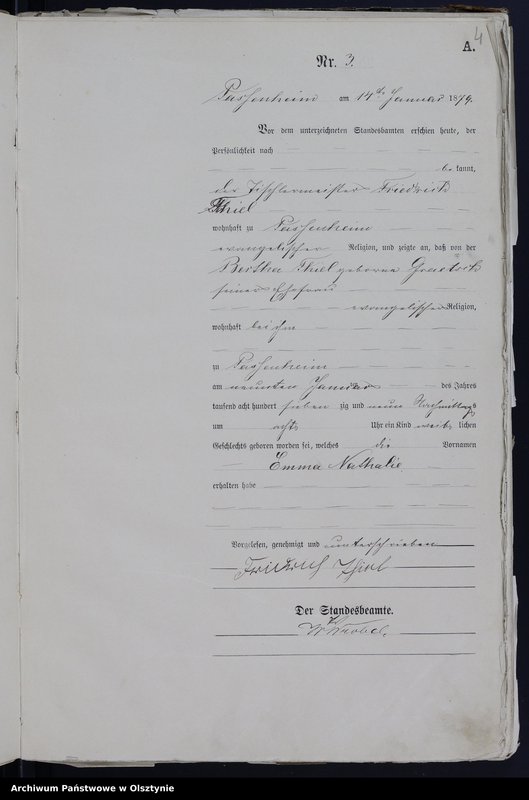 4
A.
Nr. 3.
Passenheim am 14ten Januar 1879.
Vor dem unterzeichneten Standesbeamten erschien heute, der
Persönlichkeit nach
be kannt,
der Tischlermeister Friedrich
Thiel
wohnhaft zu Passenheim
evangelischer Religion, und zeigte an, daß von der
Bertha Thiel geborene
seiner Ehefrau
evangelischer Religion,
wohnhaft bei ihm
zu Passenheim
am neunten Januar des Jahres
tausend acht hundert sieben zig und neun Nachmittags
um acht Uhr ein Kind weib lichen
Geschlechts geboren worden sei, welches die Vornamen
Emma Nathalie
erhalten habe
Vorgelesen, genehmigt und unterschrieben
Friedrich Thiel
Der Standesbeamte.
Archiwum Państwowe w Olsztynie